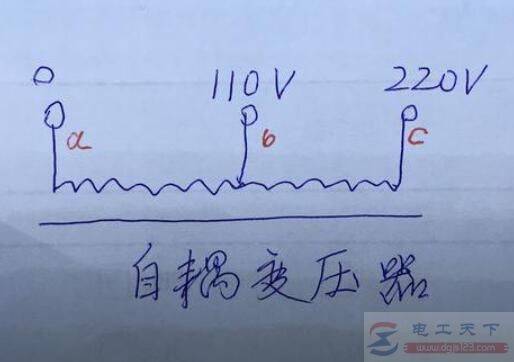 0 110V 220V
a b c
自耦变压器
电工天下
www.dgjs123.com